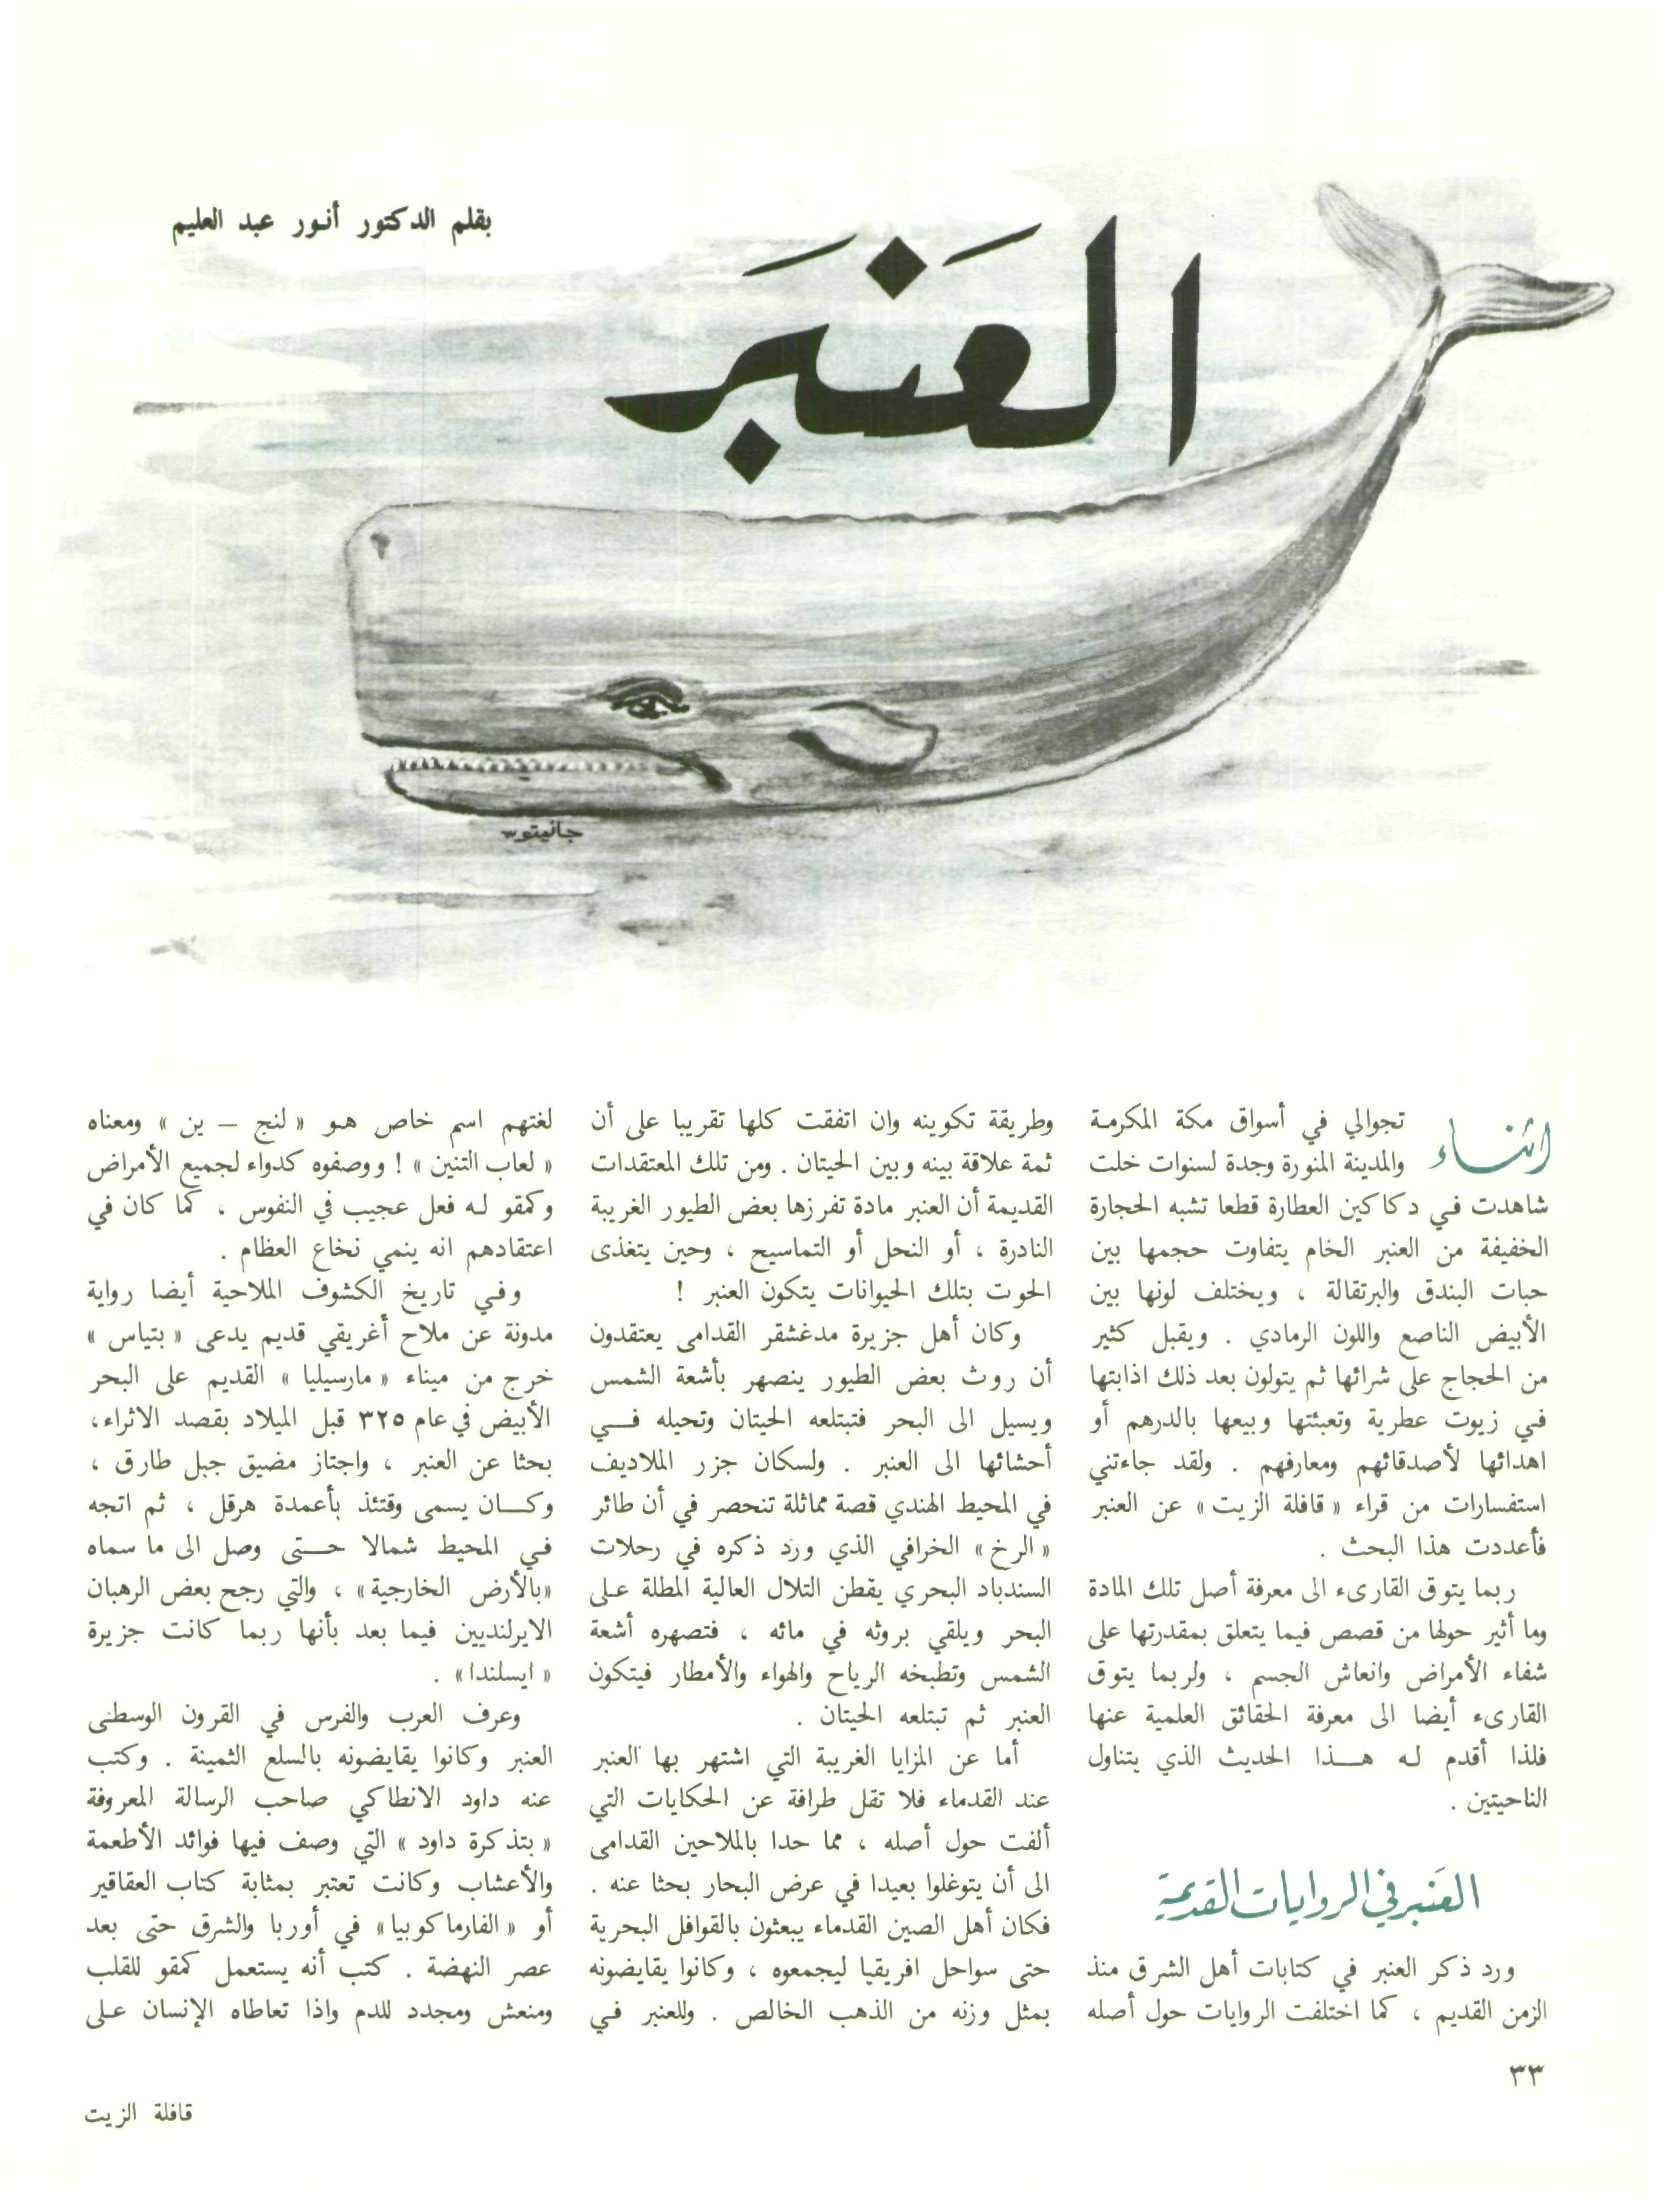 بقلم الدكتور أنور عبد العليم
العَنبَر
جانيتوس
اثناء
تجوالي في أسواق مكة المكرمة
والمدينة المنورة وجدة لسنوات خلت
شاهدت في دكاكين العطارة قطعا تشبه الحجارة
الخفيفة من العنبر الخام يتفاوت حجمها بين
حبات البندق والبرتقالة ، ويختلف لونها بين
الأبيض الناصع واللون الرمادي . ويقبل كثير
من الحجاج على شرائها ثم يتولون بعد ذلك اذابتها
في زيوت عطرية وتعبئتها وبيعها بالدرهم أو
اهدائها لأصدقائهم ومعارفهم . ولقد جاءتني
استفسارات من قراء « قافلة الزيت » عن العنبر
فأعددت هذا البحث .
ربما يتوق القارىء الى معرفة أصل تلك المادة
وما أثير حولها من قصص فيما يتعلق بمقدرتها على
شفاء الأمراض وانعاش الجسم ، ولربما يتوق
القارىء أيضا الى معرفة الحقائق العلمية عنها
فلذا أقدم له هذا الحديث الذي يتناول
الناحيتين .
العَنبر في الروايات القديمة
ورد ذكر العنبر في كتابات أهل الشرق منذ
الزمن القديم ، كما اختلفت الروايات حول أصله
وطريقة تكوينه وان اتفقت كلها تقريبا على أن
ثمة علاقة بينه وبين الحيتان . ومن تلك المعتقدات
القديمة أن العنبر مادة تفرزها بعض الطيور الغريبة
النادرة ، أو النحل أو التماسيح ، وحين يتغذى
الحوت بتلك الحيوانات يتكون العنبر !
وكان أهل جزيرة مدغشقر القدامى يعتقدون
أن روث بعض الطيور ينصهر بأشعة الشمس
ويسيل الى البحر فتبتلعه الحيتان وتحيله في
أحشائها الى العنبر . ولسكان جزر الملاديف
في المحيط الهندي قصة مماثلة تنحصر في أن طائر
« الرخ » الخرافي الذي ورد ذكره في رحلات
السندباد البحري يقطن التلال العالية المطلة على
البحر ويلقي بروثه في مائه ، فتصهره أشعة
الشمس وتطبخه الرياح والهواء والأمطار فيتكون
العنبر ثم تبتلعه الحيتان .
أما عن المزايا الغريبة التي اشتهر بها العنبر
عند القدماء فلا تقل طرافة عن الحكايات التي
ألفت حول أصله ، مما حدا بالملاحين القدامى
الى أن يتوغلوا بعيدا في عرض البحار بحثا عنه .
فكان أهل الصين القدماء يبعثون بالقوافل البحرية
حتى سواحل افريقيا ليجمعوه ، وكانوا يقايضونه
بمثل وزنه من الذهب الخالص . وللعنبر في
لغتهم اسم خاص هو « لنج – ين » ومعناه
« لعاب التنين » ! ووصفوه كدواء لجميع الأمراض
وكمقو له فعل عجيب في النفوس ، كما كان في
اعتقادهم انه ينمي نخاع العظام .
وفي تاريخ الكشوف الملاحية أيضا رواية
مدونة عن ملاح أغريقي قديم يدعى « بتياس »
خرج من ميناء « مارسيليا » القديم على البحر
الأبيض في عام ٣٢٥ قبل الميلاد بقصد الاثراء،
بحثا عن العنبر ، واجتاز مضيق جبل طارق ،
وكان يسمى وقتئذ بأعمدة هرقل ، ثم اتجه
في المحيط شمالا حتى وصل الى ما سماه
«بالأرض الخارجية» ، والتي رجح بعض الرهبان
الايرلنديين فيما بعد بأنها ربما كانت جزيرة
« ايسلندا» .
وعرف العرب والفرس في القرون الوسطى
العنبر وكانوا يقايضونه بالسلع الثمينة . وكتب
عنه داود الانطاكي صاحب الرسالة المعروفة
« بتذكرة داود » التي وصف فيها فوائد الأطعمة
والأعشاب وكانت تعتبر بمثابة كتاب العقاقير
أو « الفارماكوبيا» في أوربا والشرق حتى بعد
عصر النهضة . كتب أنه يستعمل كمقو للقلب
ومنعش ومجدد للدم واذا تعاطاه الإنسان على
٣٣
قافلة الزيت